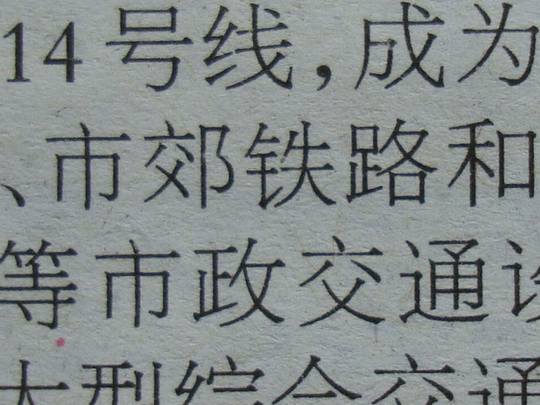 14号线，成为
、市郊铁路和
等市政交通设
大型综合交通